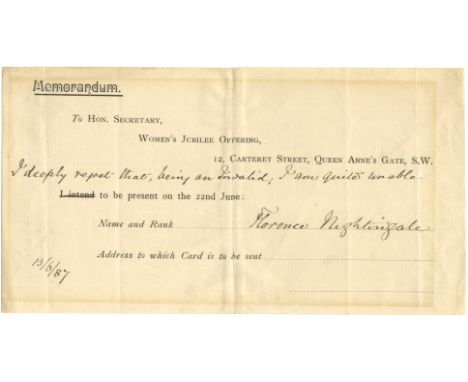 Memorandum.
To HON. SECRETARY,
WOMEN'S JUBILEE OFFERING,
12, CARTERET STREET, QUEEN ANNE'S GATE, S.W.
I deeply regret that, being an Invalid, I am quite unable
I intend to be present on the 22nd June:
Name and Rank Florence Nightingale
Address to which Card is to be sent
13/6/87